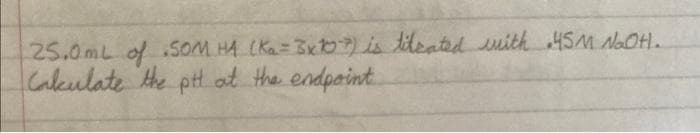 25.0mL of .50M HA (Ka=3x10⁻⁷) is titrated with .45M NaOH.
Calculate the pH at the endpoint